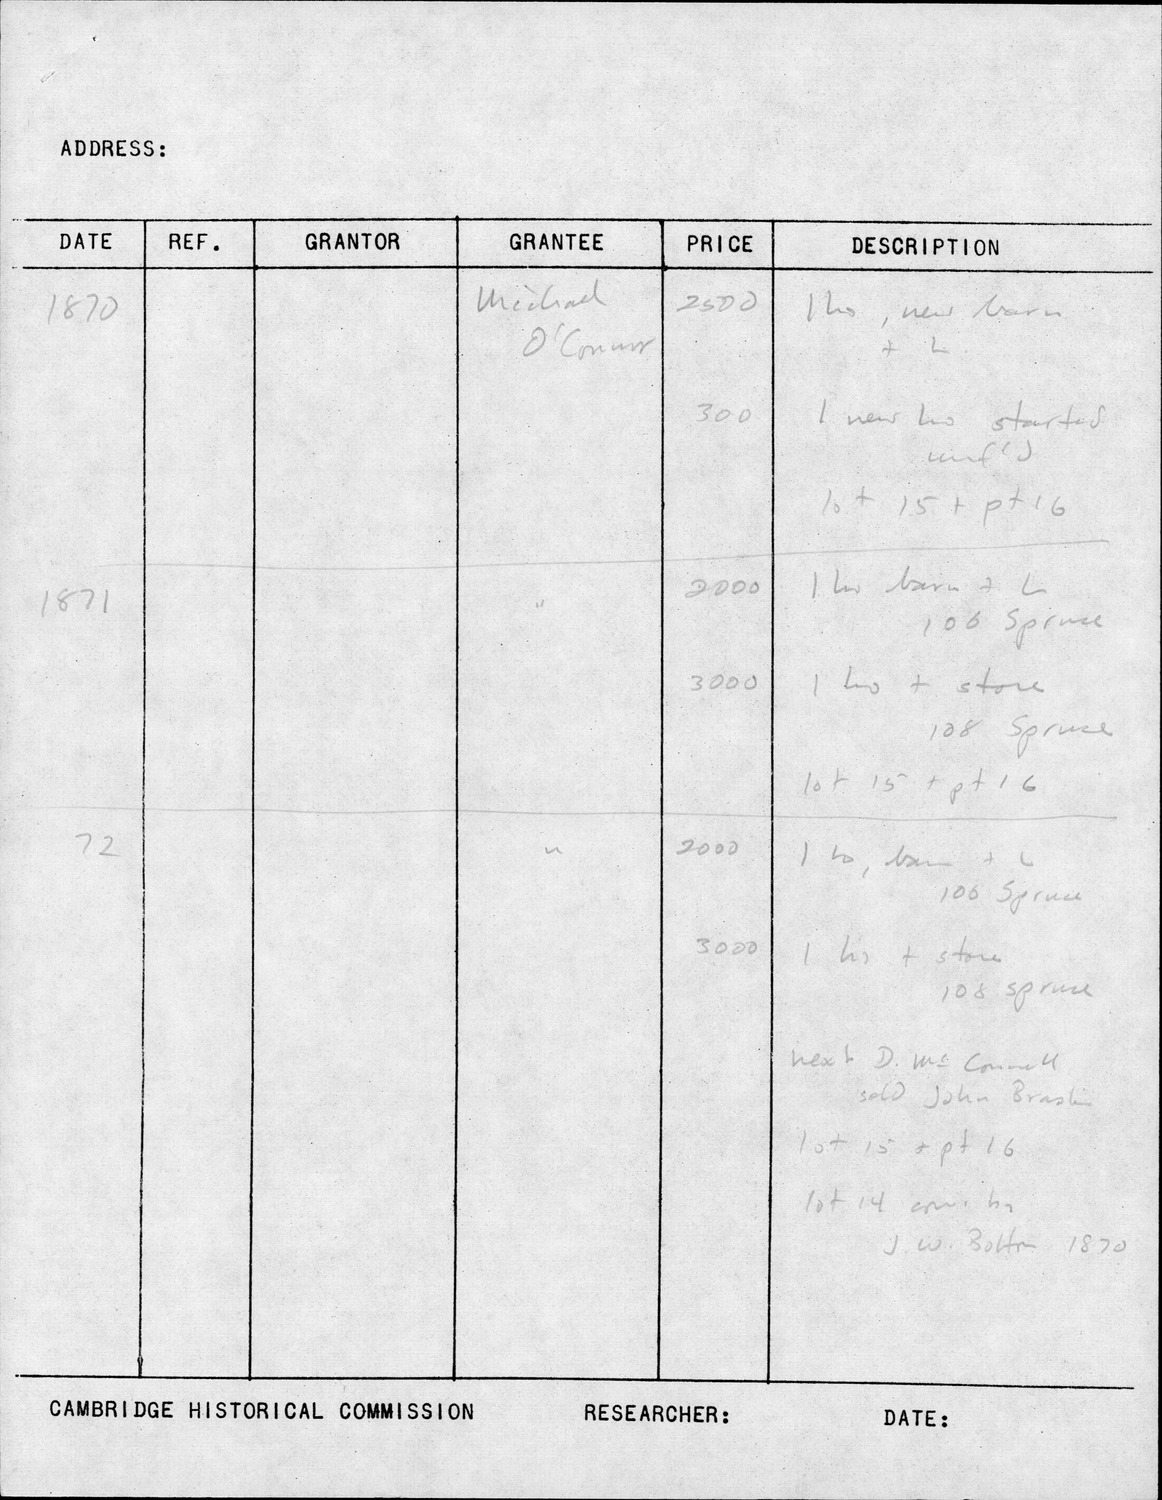 ADDRESS:
DATE REF. GRANTOR GRANTEE PRICE DESCRIPTION
1870 Michael 2500 1 ho, new barn
O'Connor + L
300 1 new ho started
unf'd
lot 15 + pt 16
1871 " 2000 1 ho barn + L
106 Spruce
3000 1 ho + store
108 Spruce
lot 15 + pt 16
72 " 2000 1 ho, barn + L
106 Spruce
3000 1 ho + store
108 Spruce
next D. McConnell
sold John
lot 15 + pt 16
lot 14
J. W. Bolton 1870
CAMBRIDGE HISTORICAL COMMISSION RESEARCHER: DATE: